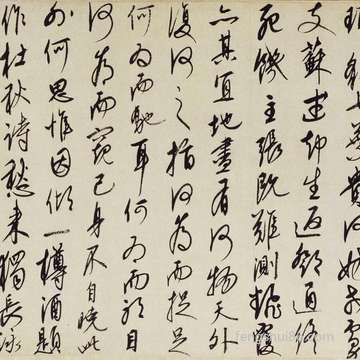 珥貂七葉貴何妨戎虜
支蘇武却生返鄧通終
死饑主張既難測翻覆
亦其宜地盡有何物天外
復何之指何為而捉足
何為而馳耳何為而聽目
何為而窺己身不自曉此
外何思惟因傾一樽酒題
作杜秋詩愁來獨長詠